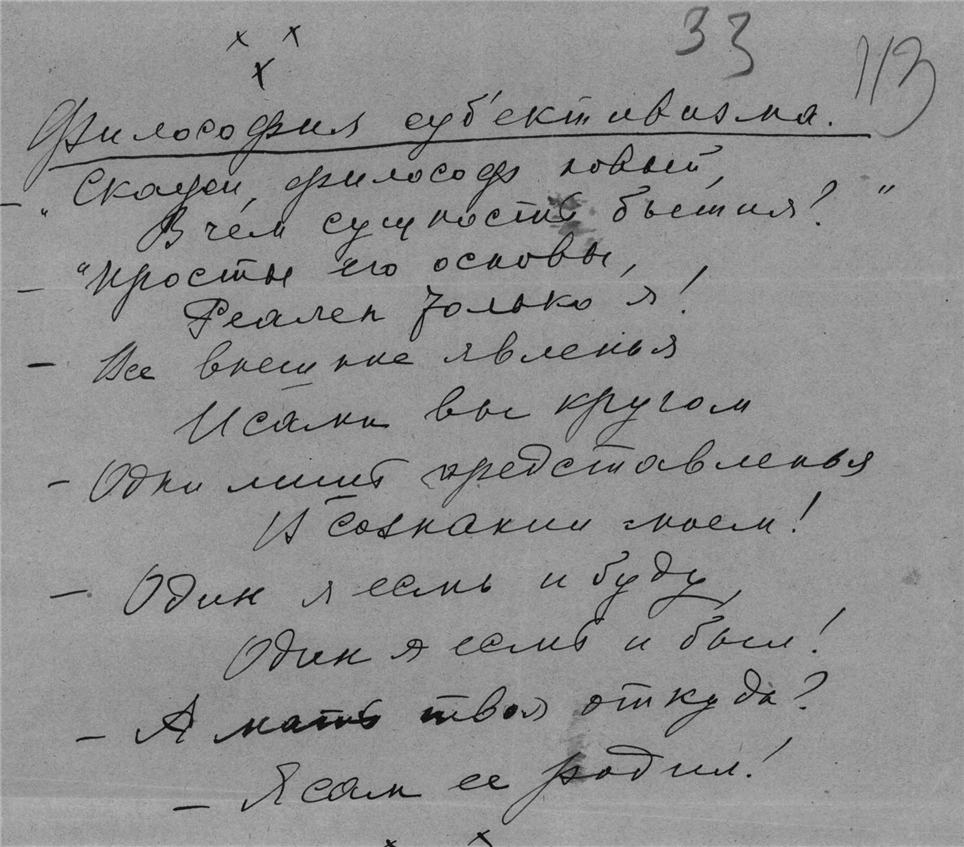 х х
х
33
113
Философия суб'ективизма.
– "Скажи, философ новый,
В чём сущность бытия?"
– "Просты его основы,
Реален только я!
– Все внешние явленья
И сами вы кругом
– Одни лишь представленья
В сознании моем!
– Один я есмь и буду,
Один я есмь и был!
– А мать твоя откуда?
– Я сам ее родил!
х х